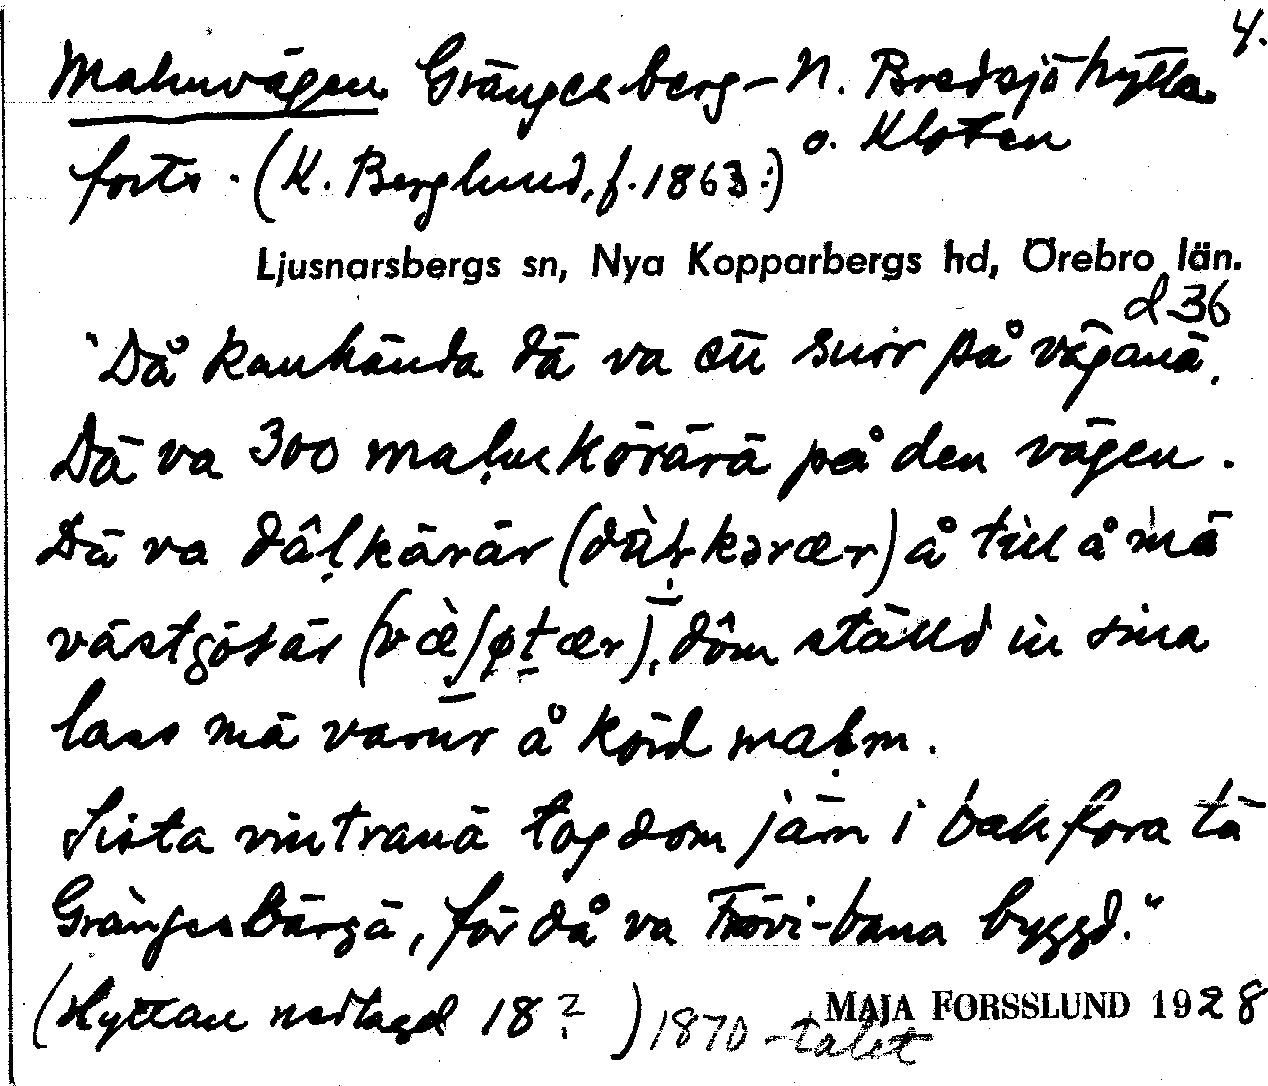 4.
Malmvägen Grängesberg - N. Bredsjöhytta
o. Kloten
forts. (K. Berglund, f. 1863.)
Ljusnarsbergs sn, Nya Kopparbergs hd, Örebro län.
d. 36
"Då kanhända dä va ett snör på väganä.
Dä va 300 malmkörärä på den vägen.
Dä va dâḷkärär å till å mä
västgötär, dôm ställd in sina
lass mä varur å körd maḷm.
Sista vintranä tog dom järn i bakfora tä
Grängesbärgä, för då va Frövi-bana byggd."
(Hyttan nedlagd 18 ? ) 1870-talet
MAJA FORSSLUND 1928